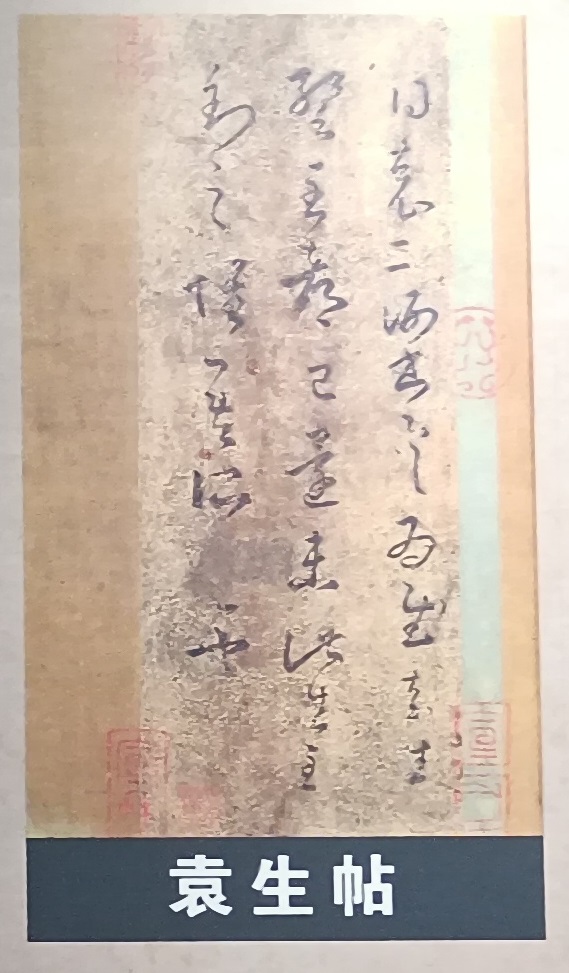 得袁二謝書具為慰袁生
暫至都已還未此生至
到之懷吾所盡也
袁生帖